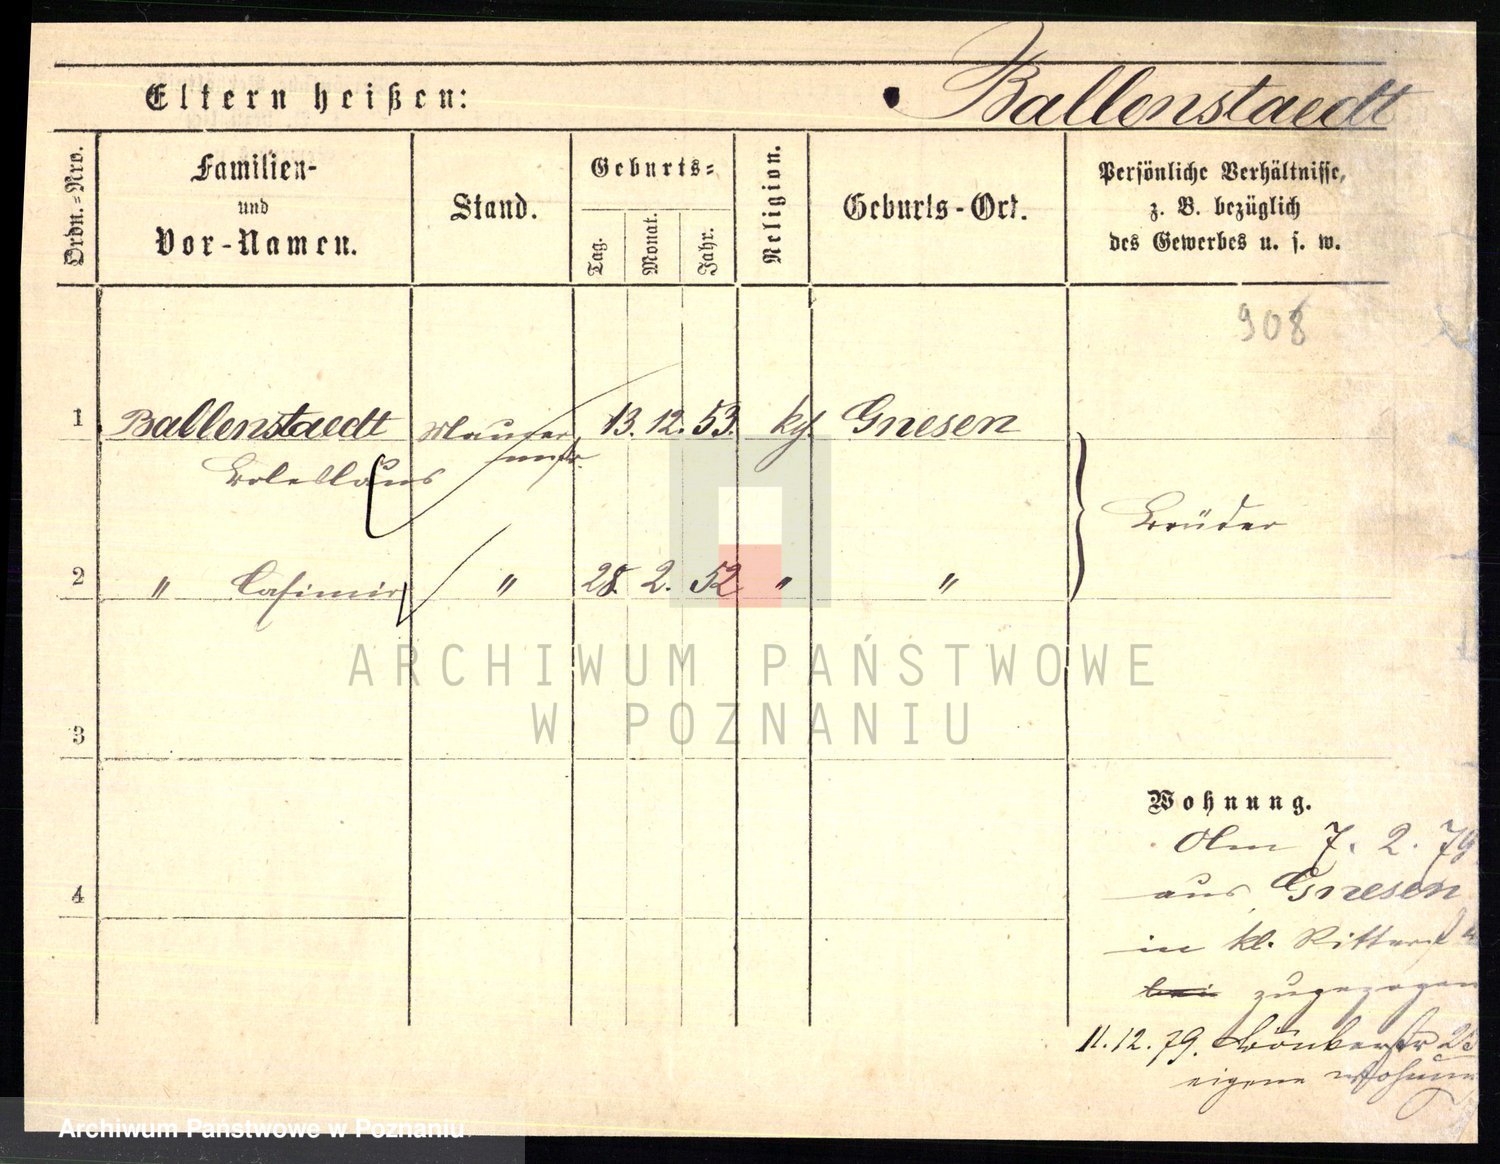 Eltern heißen:
Ballenstaedt
Ordn.=Nro.
Familien-
und
Vor-Namen.
Stand.
Geburts=
Tag.
Monat.
Jahr.
Religion.
Geburts-Ort.
Persönliche Verhältnisse,
z. B. bezüglich
des Gewerbes u. s. w.
908
1 Ballenstaedt Maurer 13. 12. 53. kg. Gnesen
mstr.
Boleslaus
Brüder
2 " Casimir " 28. 2. 52 " "
ARCHIWUM PAŃSTWOWE
W POZNANIU
3
4
Wohnung.
7. 2. 79
aus Gnesen
in kl. Ritterst
bei zugezogen
11. 12. 79.
eigene
Archiwum Państwowe w Poznaniu